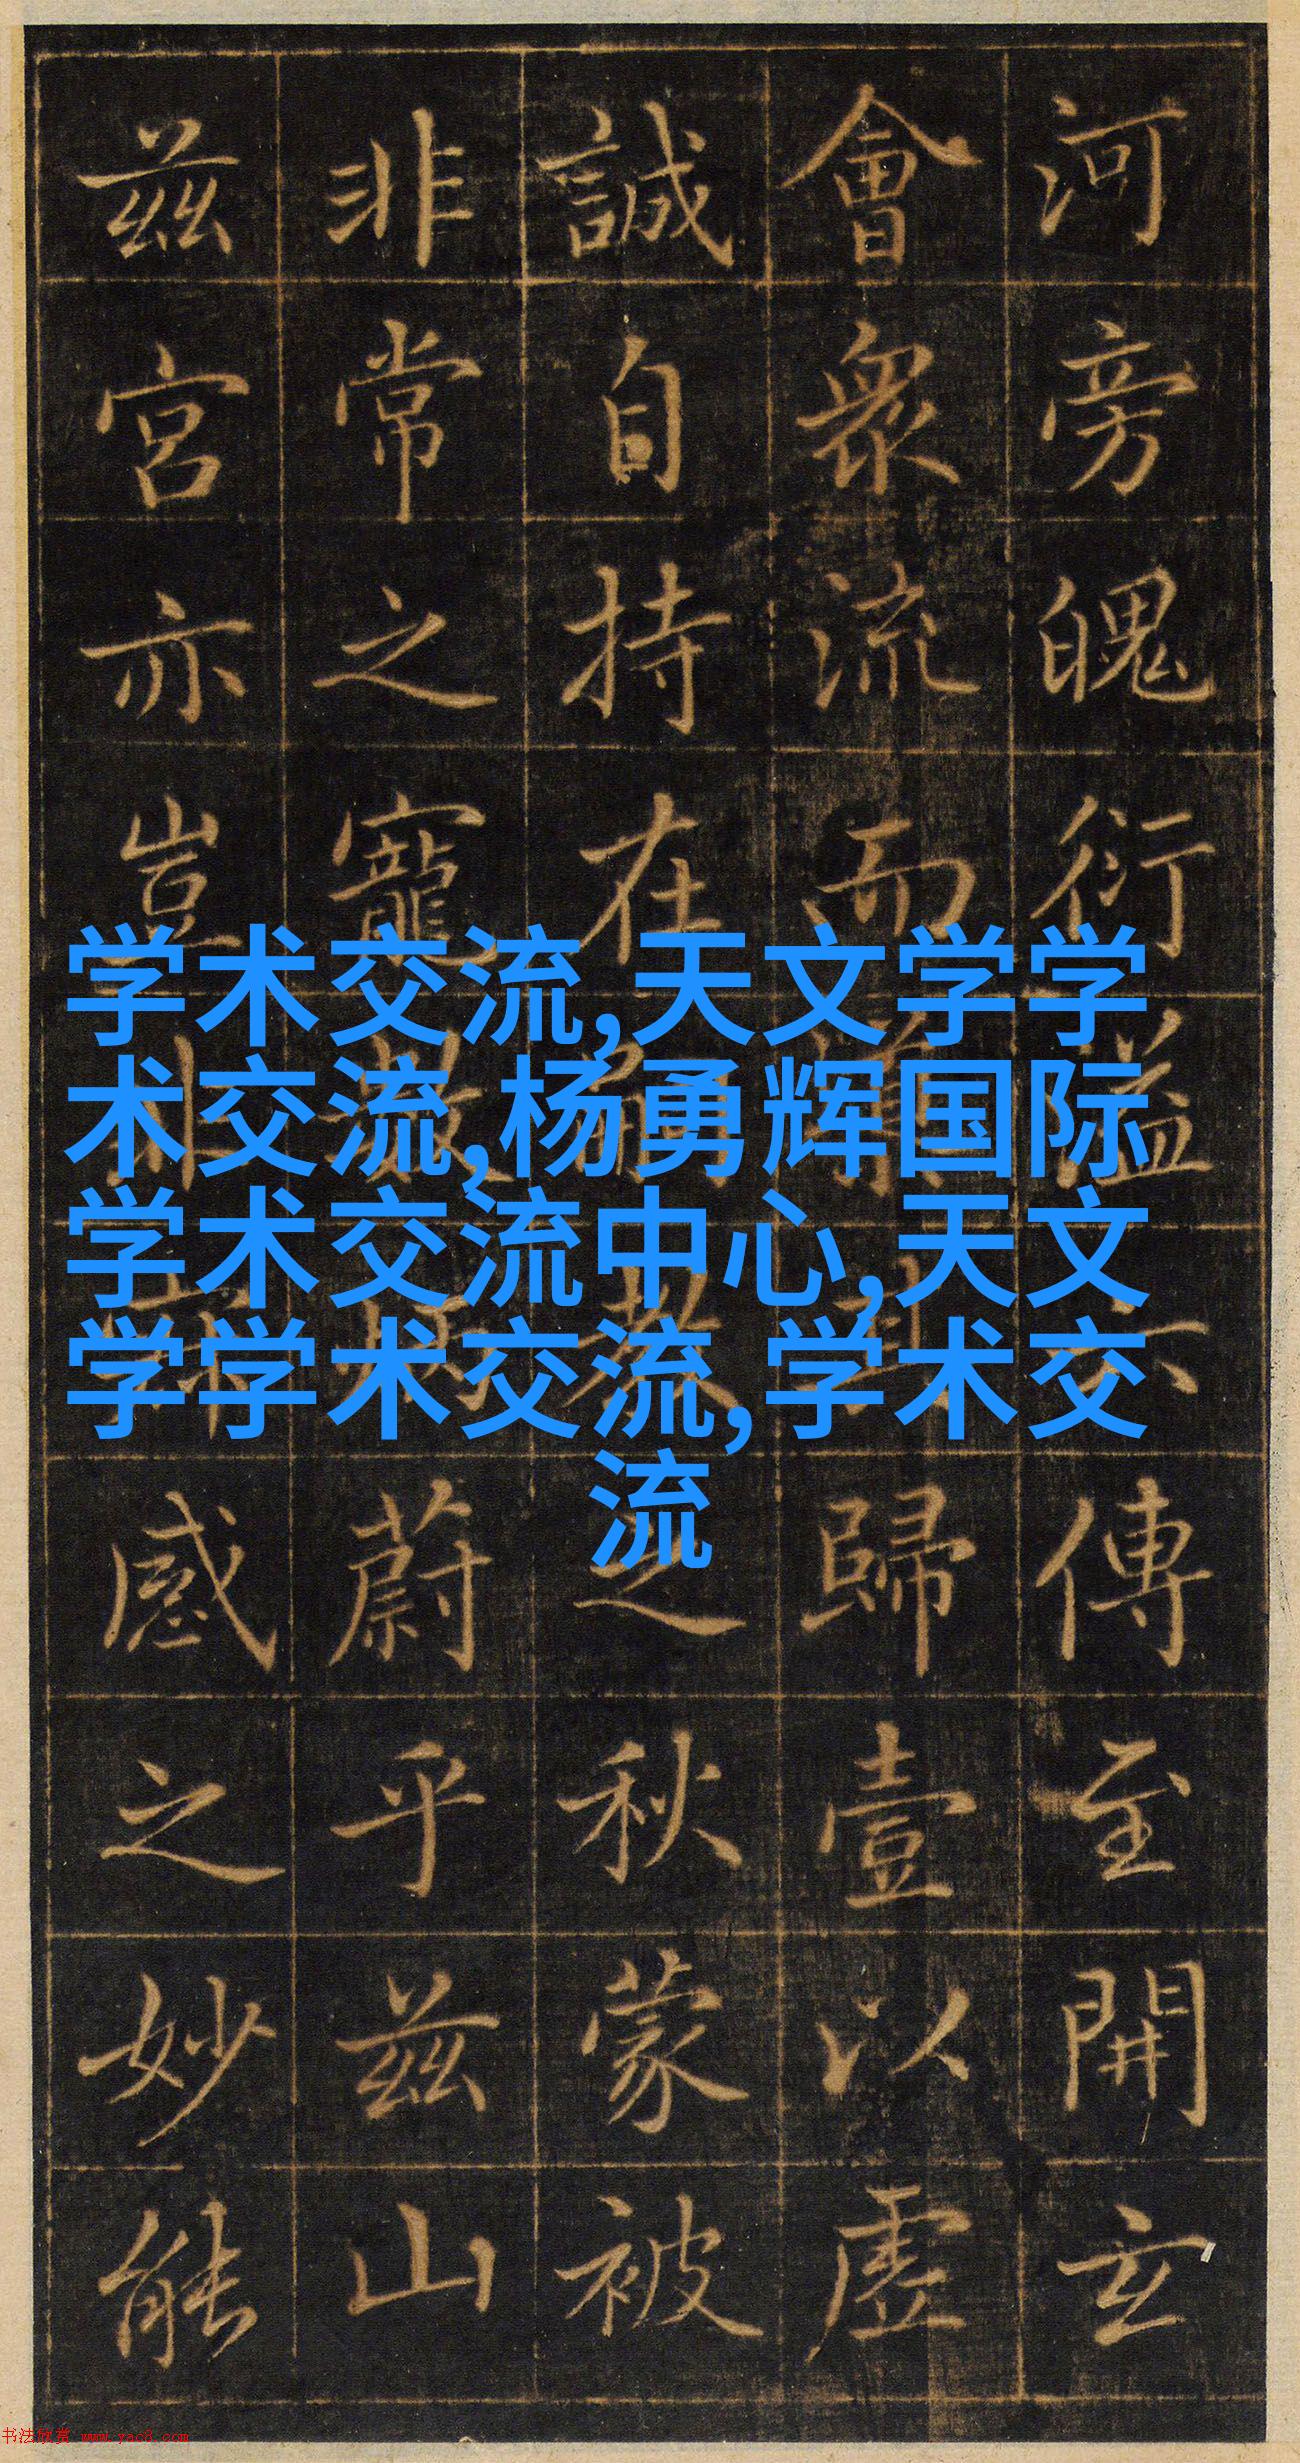 河旁魄衍溢傳至開玄
會衆流而歸壹以虛
誠自持在之秋蒙被
非常之寵蔚乎茲山
茲宮亦豈感之妙能
学术交流,天文学学
术交流,杨勇辉国际
学术交流中心,天文
学学术交流,学术交
流
书法欣赏 www.yac8.com